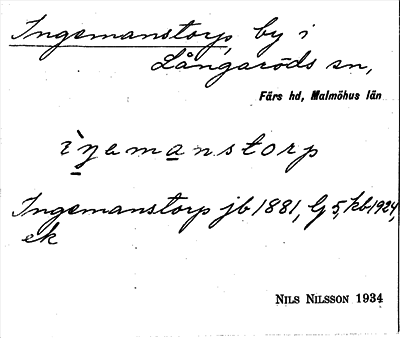 Ingemanstorp, by i
Långaröds sn,
Färs hd, Malmöhus län
ìŋamanstorp
Ingemanstorp jb 1881, G5, kb 1924,
ek
NILS NILSSON 1934